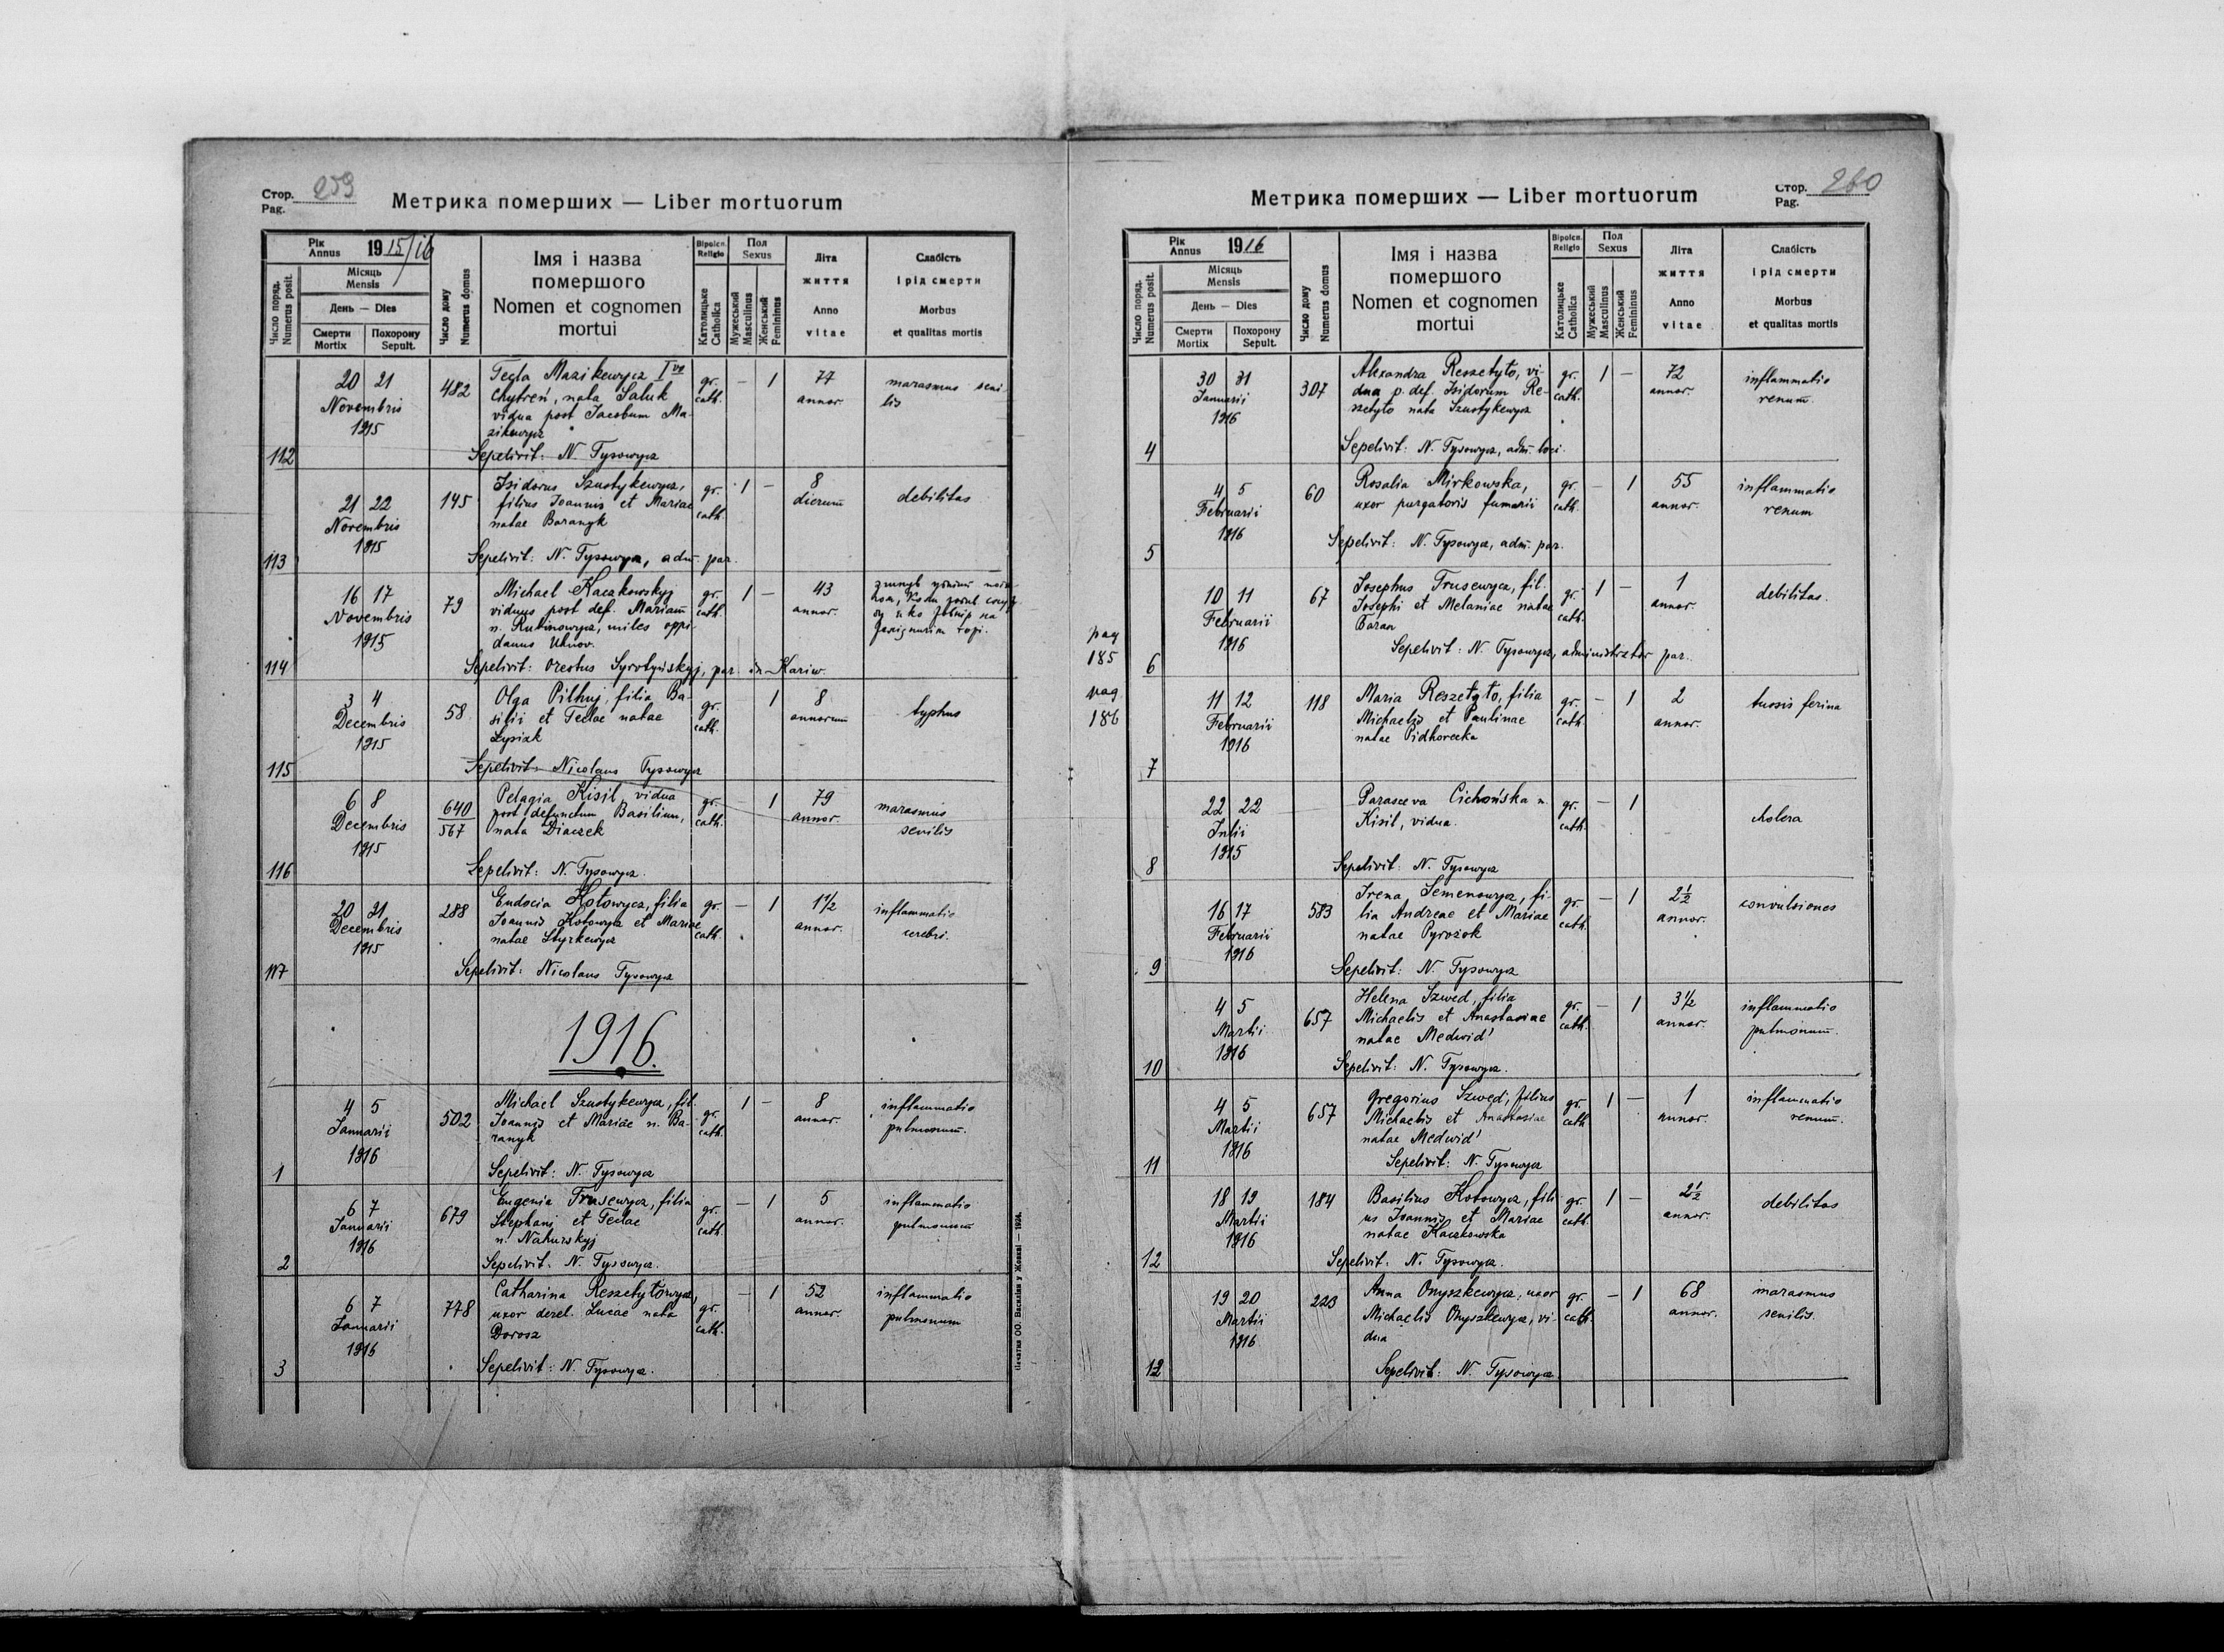 Стор. 259
Pag.
Метрика померших — Liber mortuorum
Рік
Annus 1915/16
Число поряд.
Numerus posit.
Місяць
Mensis
День — Dies
Смерти
Mortix
Похорону
Sepult.
Число дому
Numerus domus
Імя і назва
помершого
Nomen et cognomen
mortui
Віроісп.
Religio
Католицьке
Catholica
Пол
Sexus
Мужеський
Masculinus
Женський
Femininus
Літа
життя
Anno
vitae
Слабість
і рід смерти
Morbus
et qualitas mortis
112
20 21
Novembris
1915
482
Tecla Mazikewycz I vo
Chytreń, nata Saluk
vidua post Jacobum Ma-
zikewycz
gr.
cath.
— 1
77
annor.
marasmus seni-
lis
Sepelivit: N. Tysowycz
113
21 22
Novembris
1915
145
Isidorus Szustykewycz,
filius Joannis et Mariae
natae Baranyk
gr.
cath.
1 —
8
dierum
debilitas
Sepelivit: N. Tysowycz, adm. par.
114
16 17
Novembris
1915
79
Michael Kaczkowskyj
viduus post def. Mariam
n. Rubinowycz, miles oppi-
danus Uhnov.
gr.
cath.
1 —
43
annor.
Sepelivit: Orestus Syrotyńskyj, par. in Kariw.
115
3 4
Decembris
1915
58
Olga Pilhuj, filia Ba-
silii et Teclae natae
Łysiak
gr.
cath.
1
8
annorum
typhus
Sepelivit: Nicolaus Tysowycz
116
6 8
Decembris
1915
640
567
Pelagia Kisil, vidua
post defunctum Basilium,
nata Diaczek
gr.
cath.
1
79
annor.
marasmus
senilis
Sepelivit: N. Tysowycz.
117
20 21
Decembris
1915
288
Eudocia Kotowycz, filia
Joannis Kotowycz et Mariae
natae Styrkewycz
gr.
cath.
— 1
1 1/2
annor.
inflammatio
cerebri.
Sepelivit: Nicolaus Tysowycz
1916.
1
4 5
Januarii
1916
502
Michael Szustykewycz, fil.
Joannis et Mariae n. Ba-
ranyk
gr.
cath.
1 —
8
annor.
inflammatio
pulmonum.
Sepelivit: N. Tysowycz
2
6 7
Januarii
1916
679
Eugenia Trusewycz, filia
Stephani et Teclae
n. Nahurskyj
gr.
cath.
— 1
5
annor.
inflammatio
pulmonum
Sepelivit: N. Tysowycz.
3
6 7
Januarii
1916
778
Catharina Reszetyłowycz,
uxor derel. Lucae nata
Dorosz
gr.
cath.
— 1
52
annor.
inflammatio
pulmonum
Sepelivit: N. Tysowycz.
Печатня ОО. Василіян у Жовкві — 1924.
Метрика померших — Liber mortuorum
Стор. 260
Pag.
Рік
Annus 1916
Число поряд.
Numerus posit.
Місяць
Mensis
День — Dies
Смерти
Mortix
Похорону
Sepult.
Число дому
Numerus domus
Імя і назва
помершого
Nomen et cognomen
mortui
Віроісп.
Religio
Католицьке
Catholica
Пол
Sexus
Мужеський
Masculinus
Женський
Femininus
Літа
життя
Anno
vitae
Слабість
і рід смерти
Morbus
et qualitas mortis
4
30 31
Januarii
1916
307
Alexandra Reszetyło, vi-
dua p. def. Isidorum Re-
szetyło nata Szustykewycz
gr.
cath.
1 —
72
annor.
inflammatio
renum.
Sepelivit: N. Tysowycz, adm. loci.
5
4 5
Februarii
1916
60
Rosalia Mirkowska,
uxor purgatoris fumarii
gr.
cath.
— 1
55
annor.
inflammatio
renum
Sepelivit: N. Tysowycz, adm. par.
pag
185
6
10 11
Februarii
1916
67
Josephus Trusewycz, fil.
Josephi et Melaniae natae
Baran
gr.
cath.
1 —
1
annor.
debilitas.
Sepelivit: N. Tysowycz, administrator par.
pag
186
7
11 12
Februarii
1916
118
Maria Reszetyło, filia
Michaelis et Paulinae
natae Pidhorecka
gr.
cath.
— 1
2
annor.
tussis ferina
8
22 22
Julii
1915
Parasceva Cichońska n.
Kisil, vidua.
gr.
cath.
— 1
cholera
Sepelivit: N. Tysowycz
9
16 17
Februarii
1916
583
Irena Semenowycz, fi-
lia Andreae et Mariae
natae Pyrożok
gr.
cath.
— 1
2 1/2
annor.
convulsiones
Sepelivit: N. Tysowycz
10
4 5
Martii
1916
657
Helena Szwed, filia
Michaelis et Anastasiae
natae Medwid'
gr.
cath.
— 1
3 1/2
annor.
inflammatio
pulmonum.
Sepelivit: N. Tysowycz.
11
4 5
Martii
1916
657
Gregorius Szwed, filius
Michaelis et Anastasiae
natae Medwid'
gr.
cath
1 —
1
annor.
inflammatio
renum.
Sepelivit: N. Tysowycz
12
18 19
Martii
1916
184
Basilius Kotowycz, fili-
us Joannis et Mariae
natae Kaczkowska
gr.
cath.
1 —
2 1/2
annor.
debilitas
Sepelivit: N. Tysowycz.
12
19 20
Martii
1916
223
Anna Onyszkewycz, uxor
Michaelis Onyszkewycz, vi-
dua
gr.
cath.
— 1
68
annor.
marasmus
senilis.
Sepelivit: N. Tysowycz